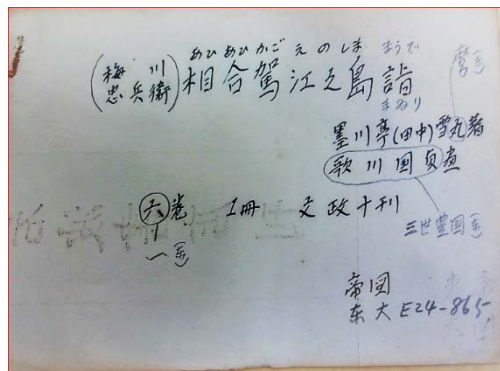 あひあひかごえのしままうで
(梅川忠兵衛)相合駕江之島詣
まゐり
墨川亭(田中)雪丸著
歌川国貞画
三世豊国
六巻 1冊 文政十刊
一
帝国
东大 E24-865